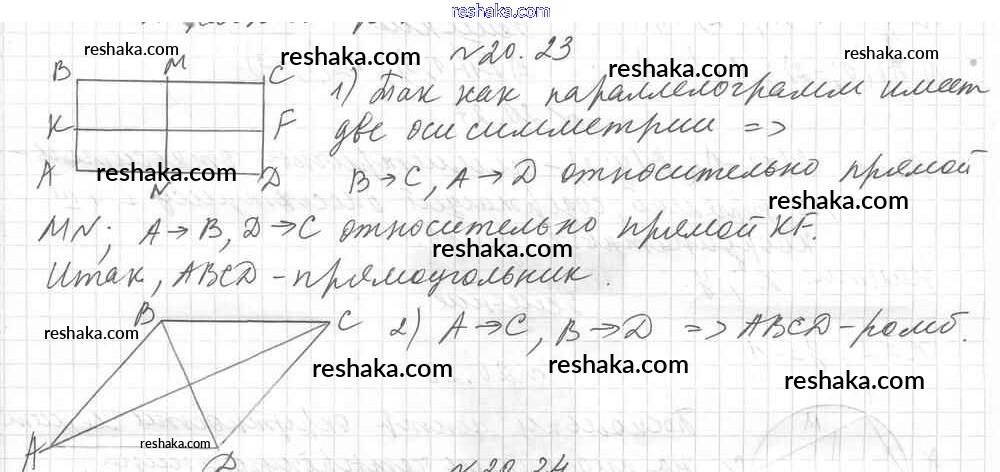 reshaka.com
№20.23
reshaka.com
reshaka.com
reshaka.com
reshaka.com
B M C
1) Так как параллелограмм имеет
K F
две оси симметрии =>
A N D
reshaka.com
B → C, A → D относительно прямой
reshaka.com
MN; A → B, D → C относительно прямой KF.
reshaka.com
Итак, ABCD - прямоугольник.
B C
2) A → C, B → D => ABCD - ромб.
reshaka.com
reshaka.com
reshaka.com
reshaka.com
A D
reshaka.com
№20.24